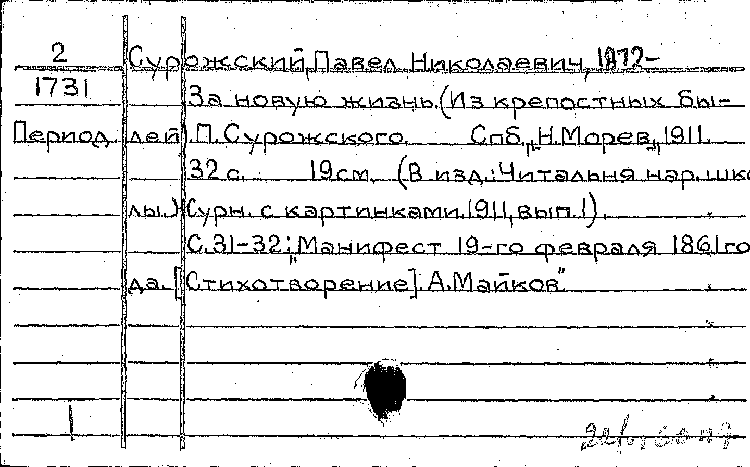 2 Сурожский, Павел Николаевич, 1872-
1731 За новую жизнь. (Из крепостных бы-
Период. лей). П. Сурожского. Спб., "Н. Морев", 1911.
32 с. 19 см. (В изд.: Читальня нар. шко-
лы.) Сурн. с картинками. 1911, вып. 1).
С. 31-32: "Манифест 19-го февраля 1861 го-
да. [Стихотворение]. А. Майков"
1